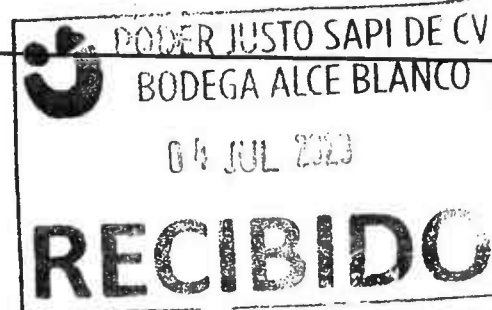 PODER JUSTO SAPI DE CV
BODEGA ALCE BLANCO
04 JUL
RECIBIDO